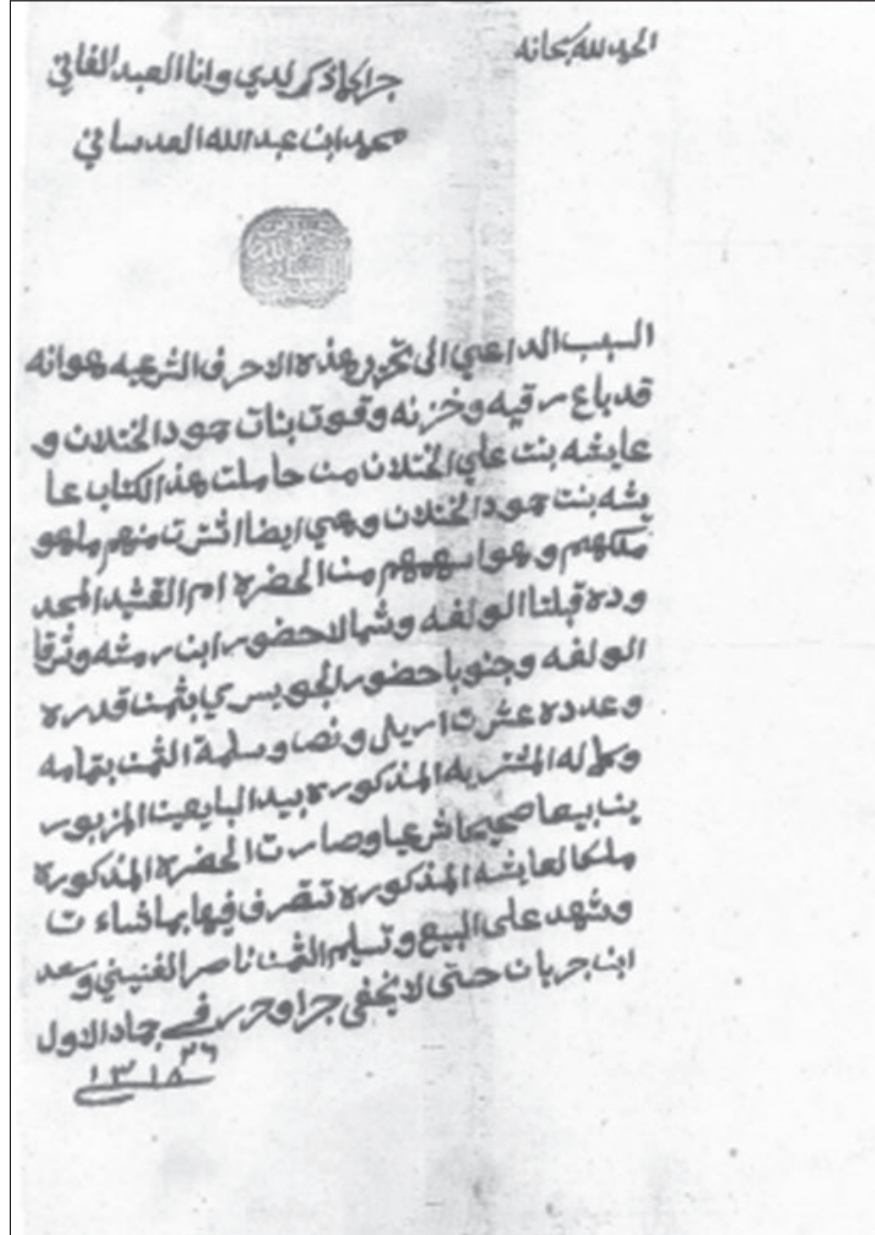 الحمد لله سبحانه
جرا كما ذكر لدي وانا العبد الفاني
محمد ابن عبدالله العدساني
السبب الداعي الى تحرير هذه الاحرف الشرعيه هوانه
قد باع رقيه وخزنه وقوت بنات حمود الختلان و
عايشه بنت علي الختلان من حاملت هذ الكتاب عا
يشه بنت حمود الختلان وهي ايضا اشترت منهم ماهو
ملكهم وهو اسهمهم من الحضره ام القشيد المحد
وده قبلتا الولفه وشمالا حضور ابن رمثه وشرقا
الولفه وجنوبا حضور الجويسري بثمن قدره
وعدده عشرت اريل ونصا وسلمة الثمن بتمامه
وكماله المشتريه المذكوره بيد البايعين المزبور
ين بيعا صحيحا شرعيا وصارت الحضره المذكوره
ملكا لعايشه المذكوره تتصرف فيها بما شاءت
وشهد على البيع وتسليم الثمن ناصر الغنيني وسعد
ابن جربان حتى لا يخفى جرا وحرر في جماد الاول
٢٦
١٣١٨